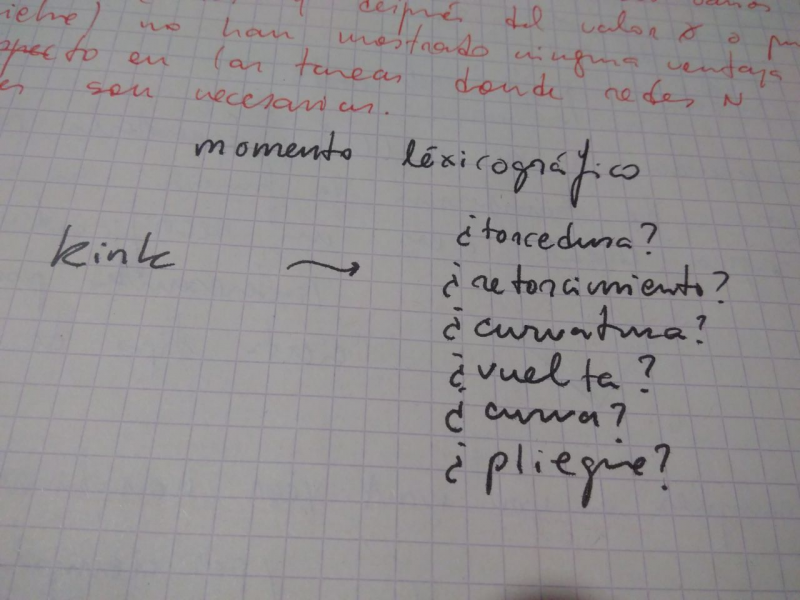 después del valor o
) no han mostrado ninguna ventaja
en las tareas donde redes N
son necesarias.
momento léxicográfico
kink → ¿torcedura?
¿retorcimiento?
¿curvatura?
¿vuelta?
¿curva?
¿pliegue?